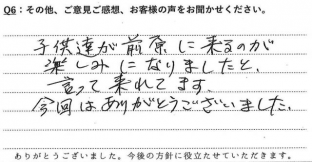 Q6：その他、ご意見ご感想、お客様の声をお聞かせください。
子供達が前原に来るのが
楽しみになりましたと、
言って来れてます。
今回はありがとうございました。
ありがとうございました。今後の方針に役立たせていただきます。